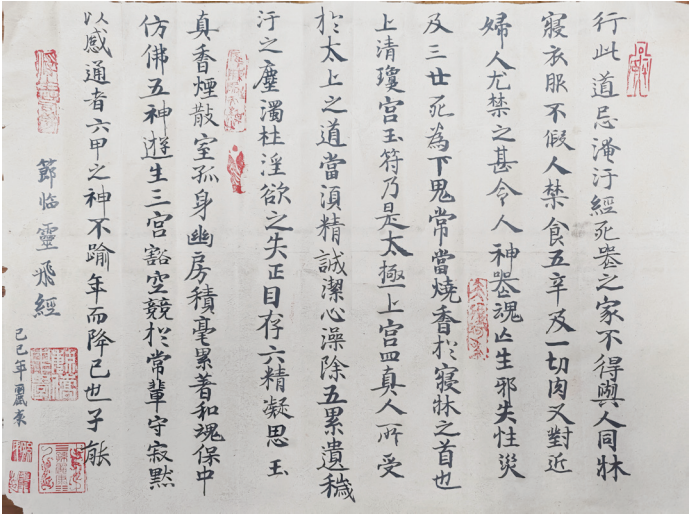 行此道忌淹汙經死喪之家不得與人同牀
寢衣服不假人禁食五辛及一切肉又對近
婦人尤禁之甚令人神喪魂亡生邪失性災
及三世死為下鬼常當燒香於寢牀之首也
上清瓊宮玉符乃是太極上宮四真人所受
於太上之道當須精誠潔心澡除五累遺穢
汙之塵濁杜淫欲之失正目存六精凝思玉
真香煙散室孤身幽房積毫累著和魂保中
仿佛五神遊生三宮豁空競於常輩守寂默
以感通者六甲之神不踰年而降已也子能
節临靈飛經
己巳年